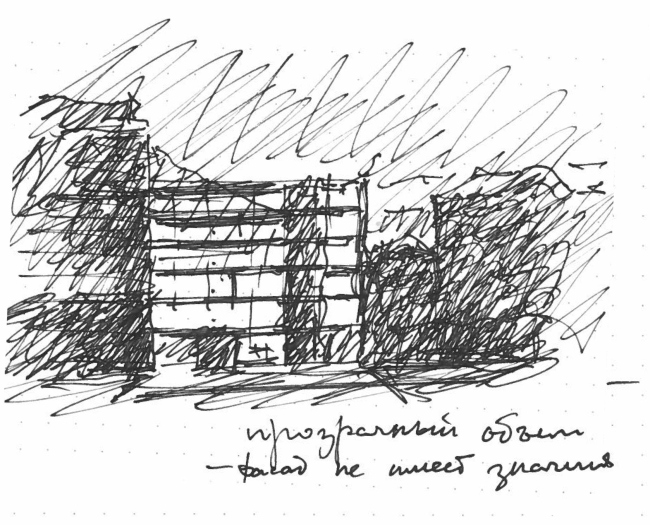 прозрачный объем
– фасад не имеет значения